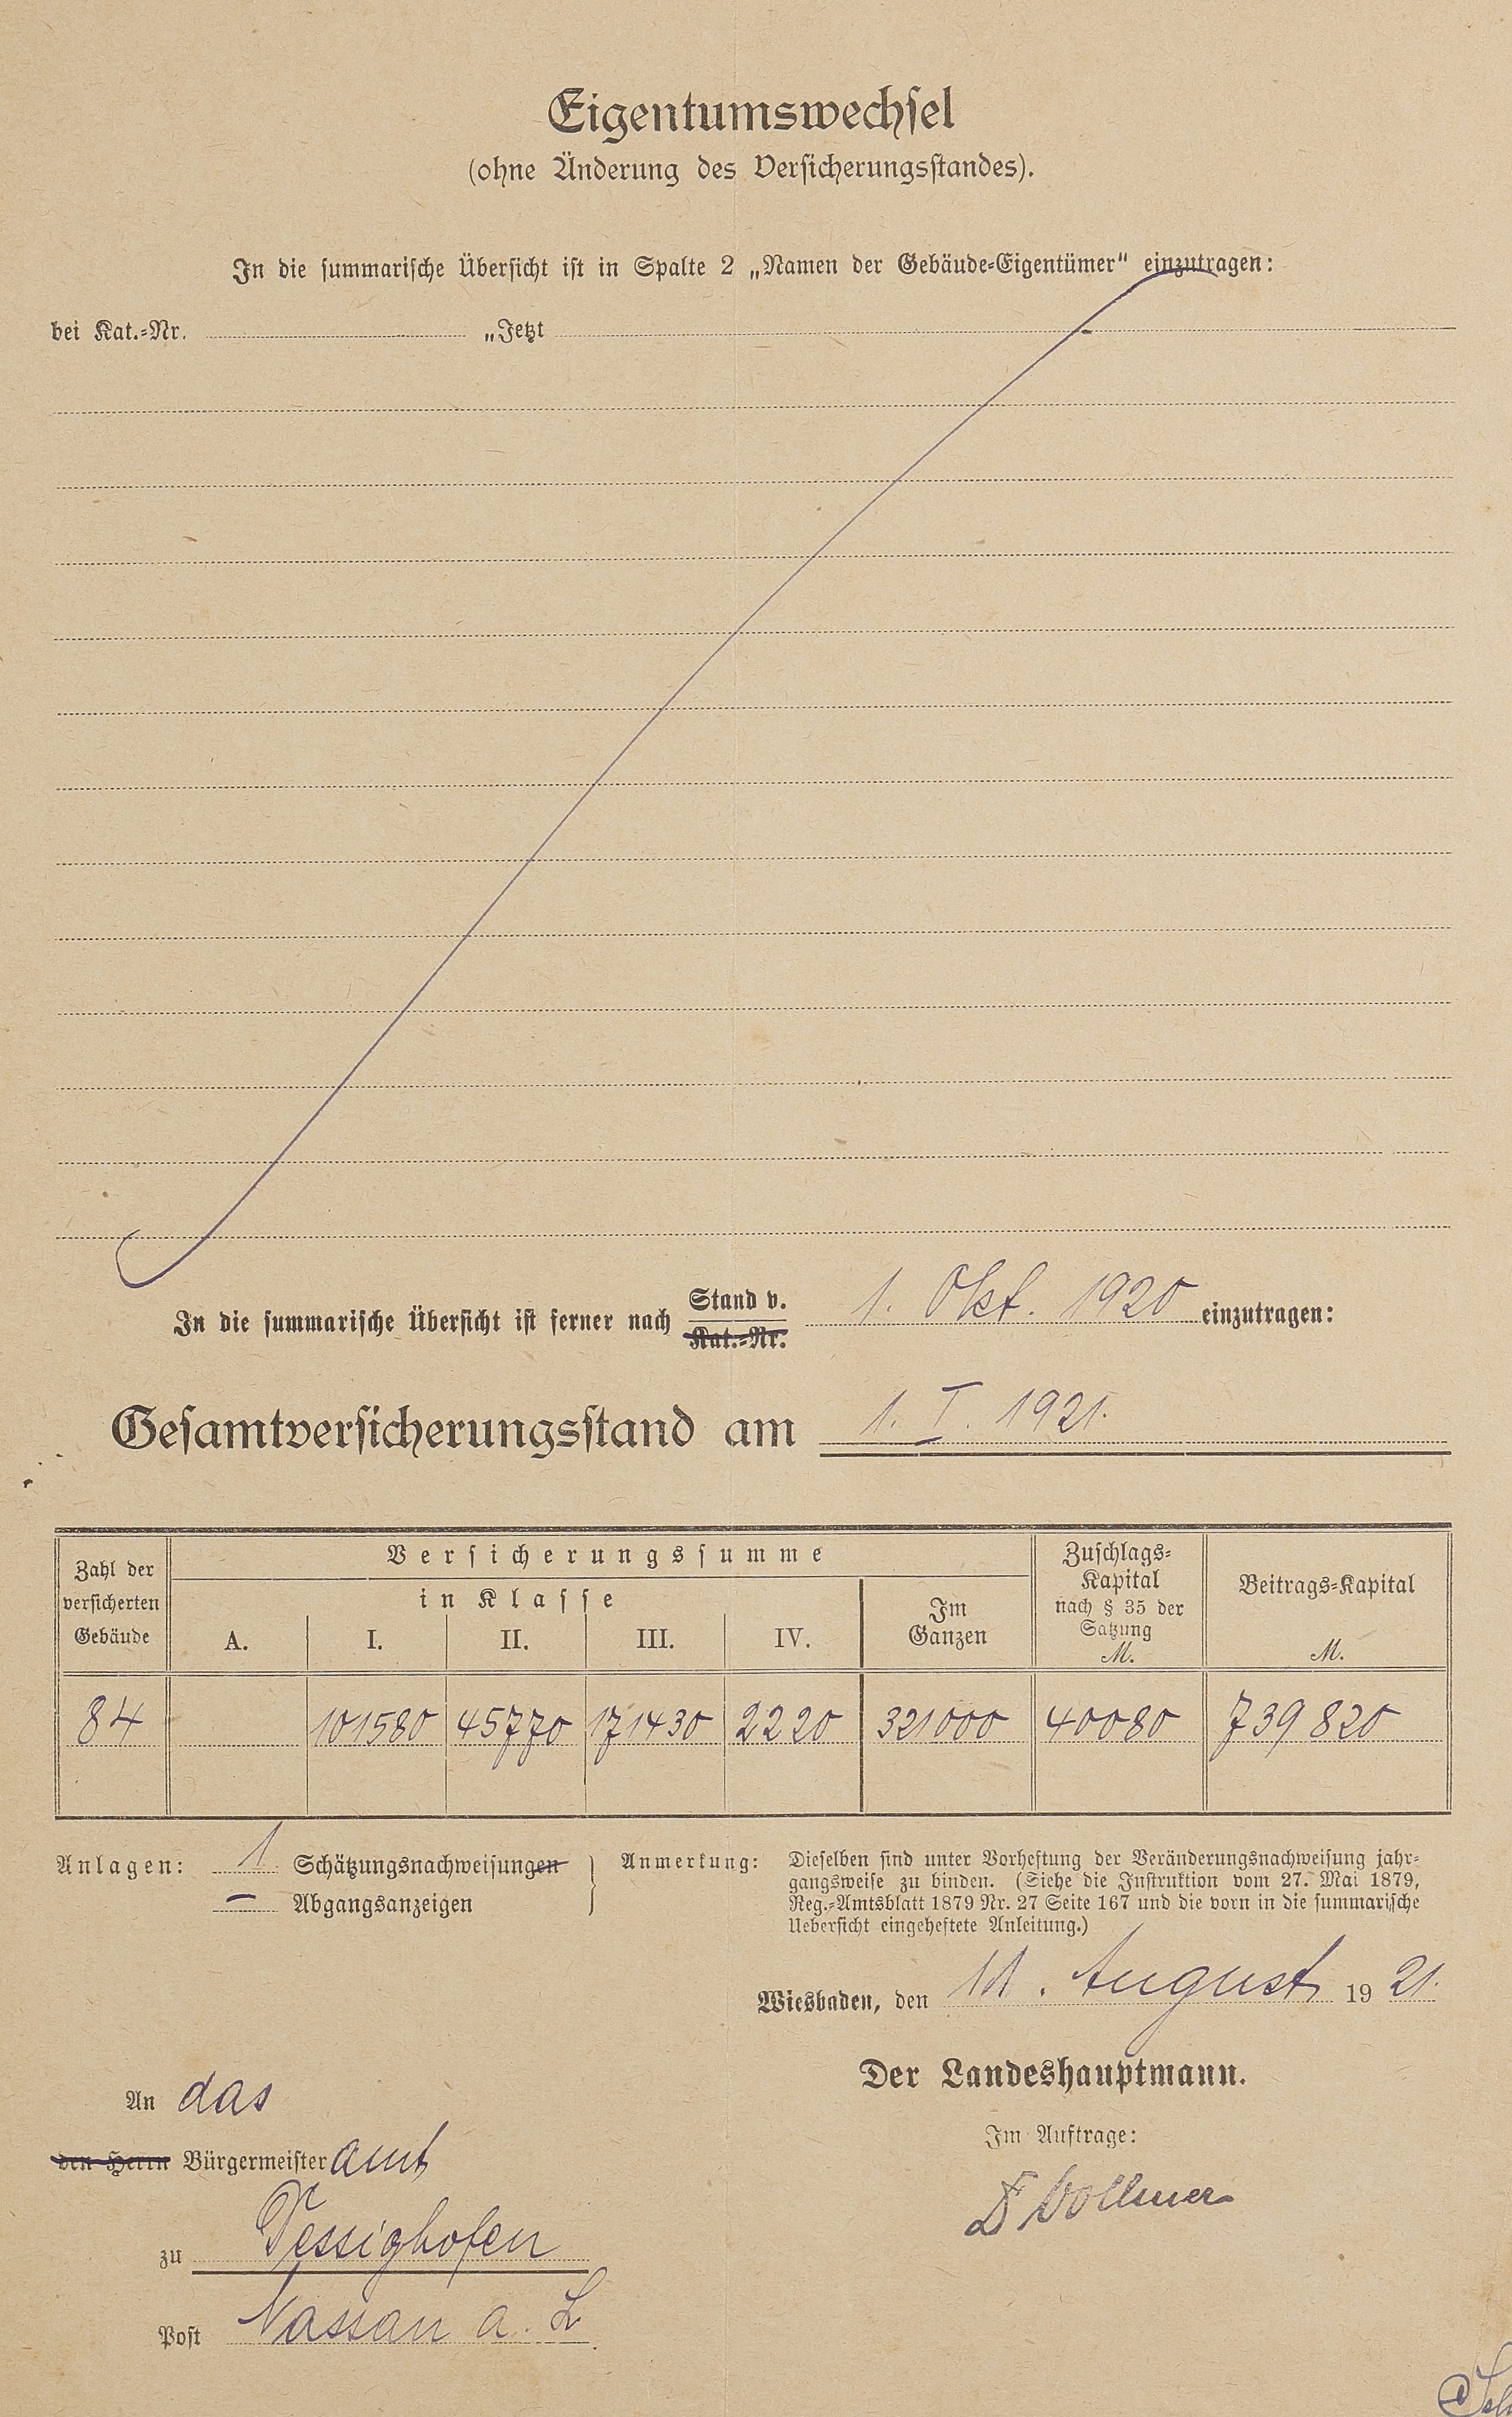 Eigentumswechsel
(ohne Änderung des Versicherungsstandes).
In die summarische Übersicht ist in Spalte 2 „Namen der Gebäude-Eigentümer“ einzutragen:
bei Kat.-Nr. „Jetzt
In die summarische Übersicht ist ferner nach Stand v. 1. Okt. 1920 einzutragen:
Kat.-Nr.
Gesamtversicherungsstand am 1. I. 1921.
Zahl der versicherten Gebäude
Versicherungssumme
in Klasse
A. I. II. III. IV.
Im Ganzen
Zuschlags-Kapital nach § 35 der Satzung M.
Beitrags-Kapital M.
84 101580 45770 171430 2220 321000 40080 739820
Anlagen: 1 Schätzungsnachweisungen
— Abgangsanzeigen
Anmerkung: Dieselben sind unter Vorheftung der Veränderungsnachweisung jahr-
gangsweise zu binden. (Siehe die Instruktion vom 27. Mai 1879,
Reg.-Amtsblatt 1879 Nr. 27 Seite 167 und die vorn in die summarische
Uebersicht eingeheftete Anleitung.)
Wiesbaden, den 11. August 1921.
Der Landeshauptmann.
Im Auftrage:
Dr Vollmer
An das
den Herrn Bürgermeisteramt
zu Dessighofen
Post Nassau a. L